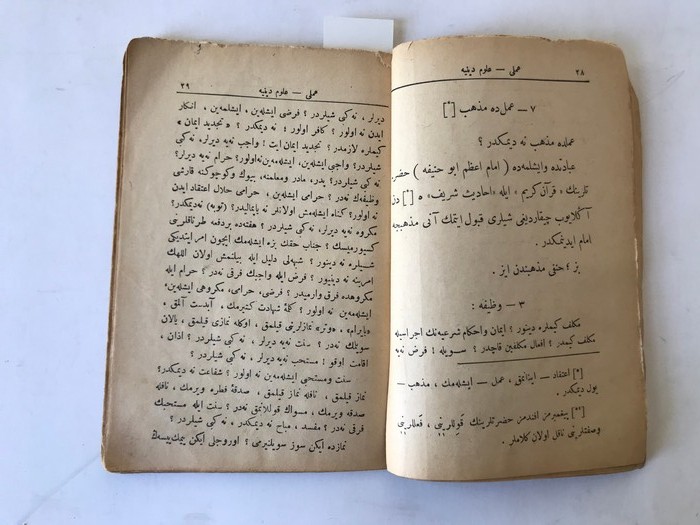 ٢٨
عملی — علوم دینیه
٧ — عمل‌ده مذهب [*]
عملده مذهب نه دیمکدر ؟
عبادتده وایشلمه‌ده ( امام اعظم ابو حنیفه ) حضر
تلرینك « قرآن کریم » ایله « احادیث شریف » ه [*] دن
آکلایوب چیقاردیغی شیلری قبول ایتمك آنی مذهبجه
امام ایدیتمکدر .
بز ؛ حنفی مذهبندن ایز .
٣ — وظیفه :
مکلف کیملره دینور ؟ ایمان واحکام شرعیه‌نك اجراسیله
مکلف کیمدر ؟ افعال مکلفین قاچدر ؟ سویله ! فرض نه‌یه
[*] اعتقاد — اینانمق ، عمل — ایشله‌مك ، مذهب —
یول دیمکدر .
[*] پیغمبرمز افندمز حضرتلرینك قوللرینی ، فعللرینی
وصفتلرینی ناقل اولان کلاملر .
عملی — علوم دینیه
٢٩
دیرلر ، نه کبی شیلردر ؟ فرضی ایشله‌ین ، ایشلمه‌ین ، انکار
ایدن نه اولور ؟ کافر اولور ! نه دیمکدر ؟ « تجدید ایمان »
کیملره لازمدر ؟ تجدید ایمان ایت ! واجب نه‌یه دیرلر ، نه کبی
شیلردر؟ واجبی ایشله‌ین، ایشلمه‌ین نه‌اولور؟ حرام نه‌یه دیرلر؟
نه کبی شیلردر؟ پدر، مادر ومعلمنه، بیوك وکوچوکنه قارشی
وظیفه‌ك نه‌در ؟ حرامی ایشله‌ین ، حرامی حلال اعتقاد ایدن
نه اولور؟ کناه ایشله‌مش اولانلر نه یاپمالیدر؟ (توبه) نه‌دیمکدر؟
مکروه نه‌یه دیرلر، نه کبی شیلردر ؟ هفته‌ده بردفعه طرناقلرینی
کسیورمیسك ؟ جناب حقك بزه ایشله‌مك ایچون امر ایتدیکی
شیلره نه دینور ؟ شبهه‌لی دلیل ایله بیلنمش اولان اللهك
امرینه نه دینیور ؟ فرض ایله واجبك فرقی نه‌در ؟ حرام ایله
مکروهده فرق وارمیدر ؟ فرضی، حرامی، مکروهی ایشله‌ین،
ایشلمه‌ین نه اولور ؟ کلمهٔ شهادت کتیرمك ، آبدست آلمق ،
«بایرام» ، «وتر» نمازلرینی قیلمق ، اوکله نمازی قیلمق ، یالان
سویلك نه‌در ؟ سنت نه‌یه دیرلر ، نه کبی شیلردر ؟ اذان ،
اقامت اوقو ! مستحب نه‌یه دیرلر ، نه کبی شیلردر ؟
سنت ومستحبی ایشلمه‌ین نه اولور ؟ شفاعت نه دیمکدر؟
نماز قیلمق ، نافله نماز قیلمق ، صدقهٔ فطره ویرمك ، نافله
صدقه ویرمك ، مسواك قوللانمق نه‌در ؟ سنت ایله مستحبك
فرقی نه‌در ؟ مفسد ، مباح نه دیمکدر ، نه کبی شیلردر ؟
نمازده ایکن سوز سویلنیرمی ؟ اوروجلی ایکن ییمك‌ییسه‌ك